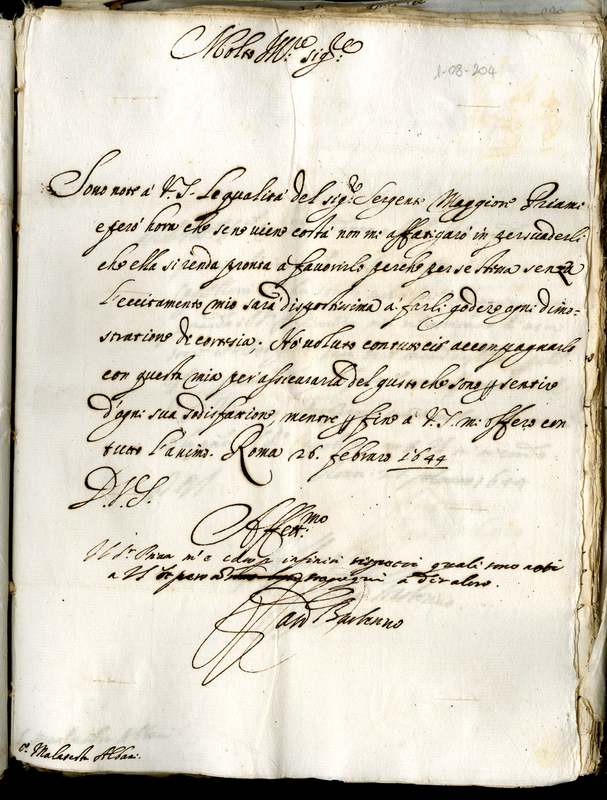 Molto Ill.re sig.re
1-08-204
Sono note à V.S. le qualità del sig.re Sergente Maggiore Priami
e però hora che se ne viene costà non mi affatigarò in persuaderli
che ella si renda pronta a favorirlo perche per se stessa senza
l'eccitamento mio sarà dispostissima a farli godere ogni dimo-
stratione di cortesia; Hò voluto contutociò accompagnarlo
con questa mia per assicurarla del gusto che sono p sentire
d'ogni sua sodisfatione, mentre p fine à V.S. mi offero con
tutto l'animo. Roma 26. febraro 1644
D.V.S.
Affett.mo
infiniti rispetti quali sono noti
a VS
Card Barberino
S.r Malatesta Albani.